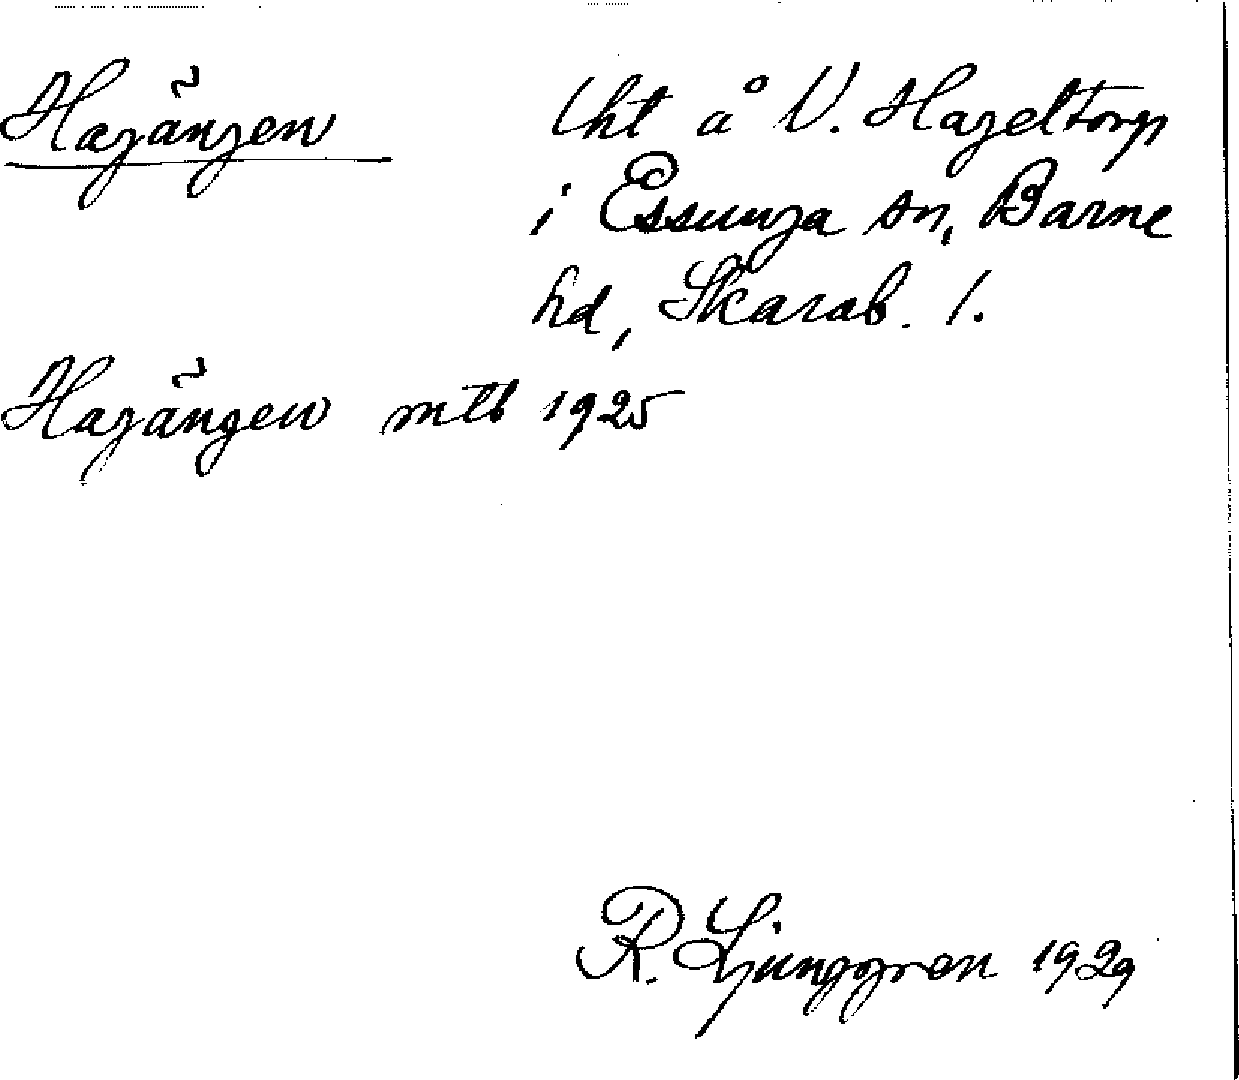 Hagängen lht å V. Hageltorp
i Essunga sn, Barne
hd, Skarab. l.
Hagängen mtb 1925
R. Ljunggren 1929